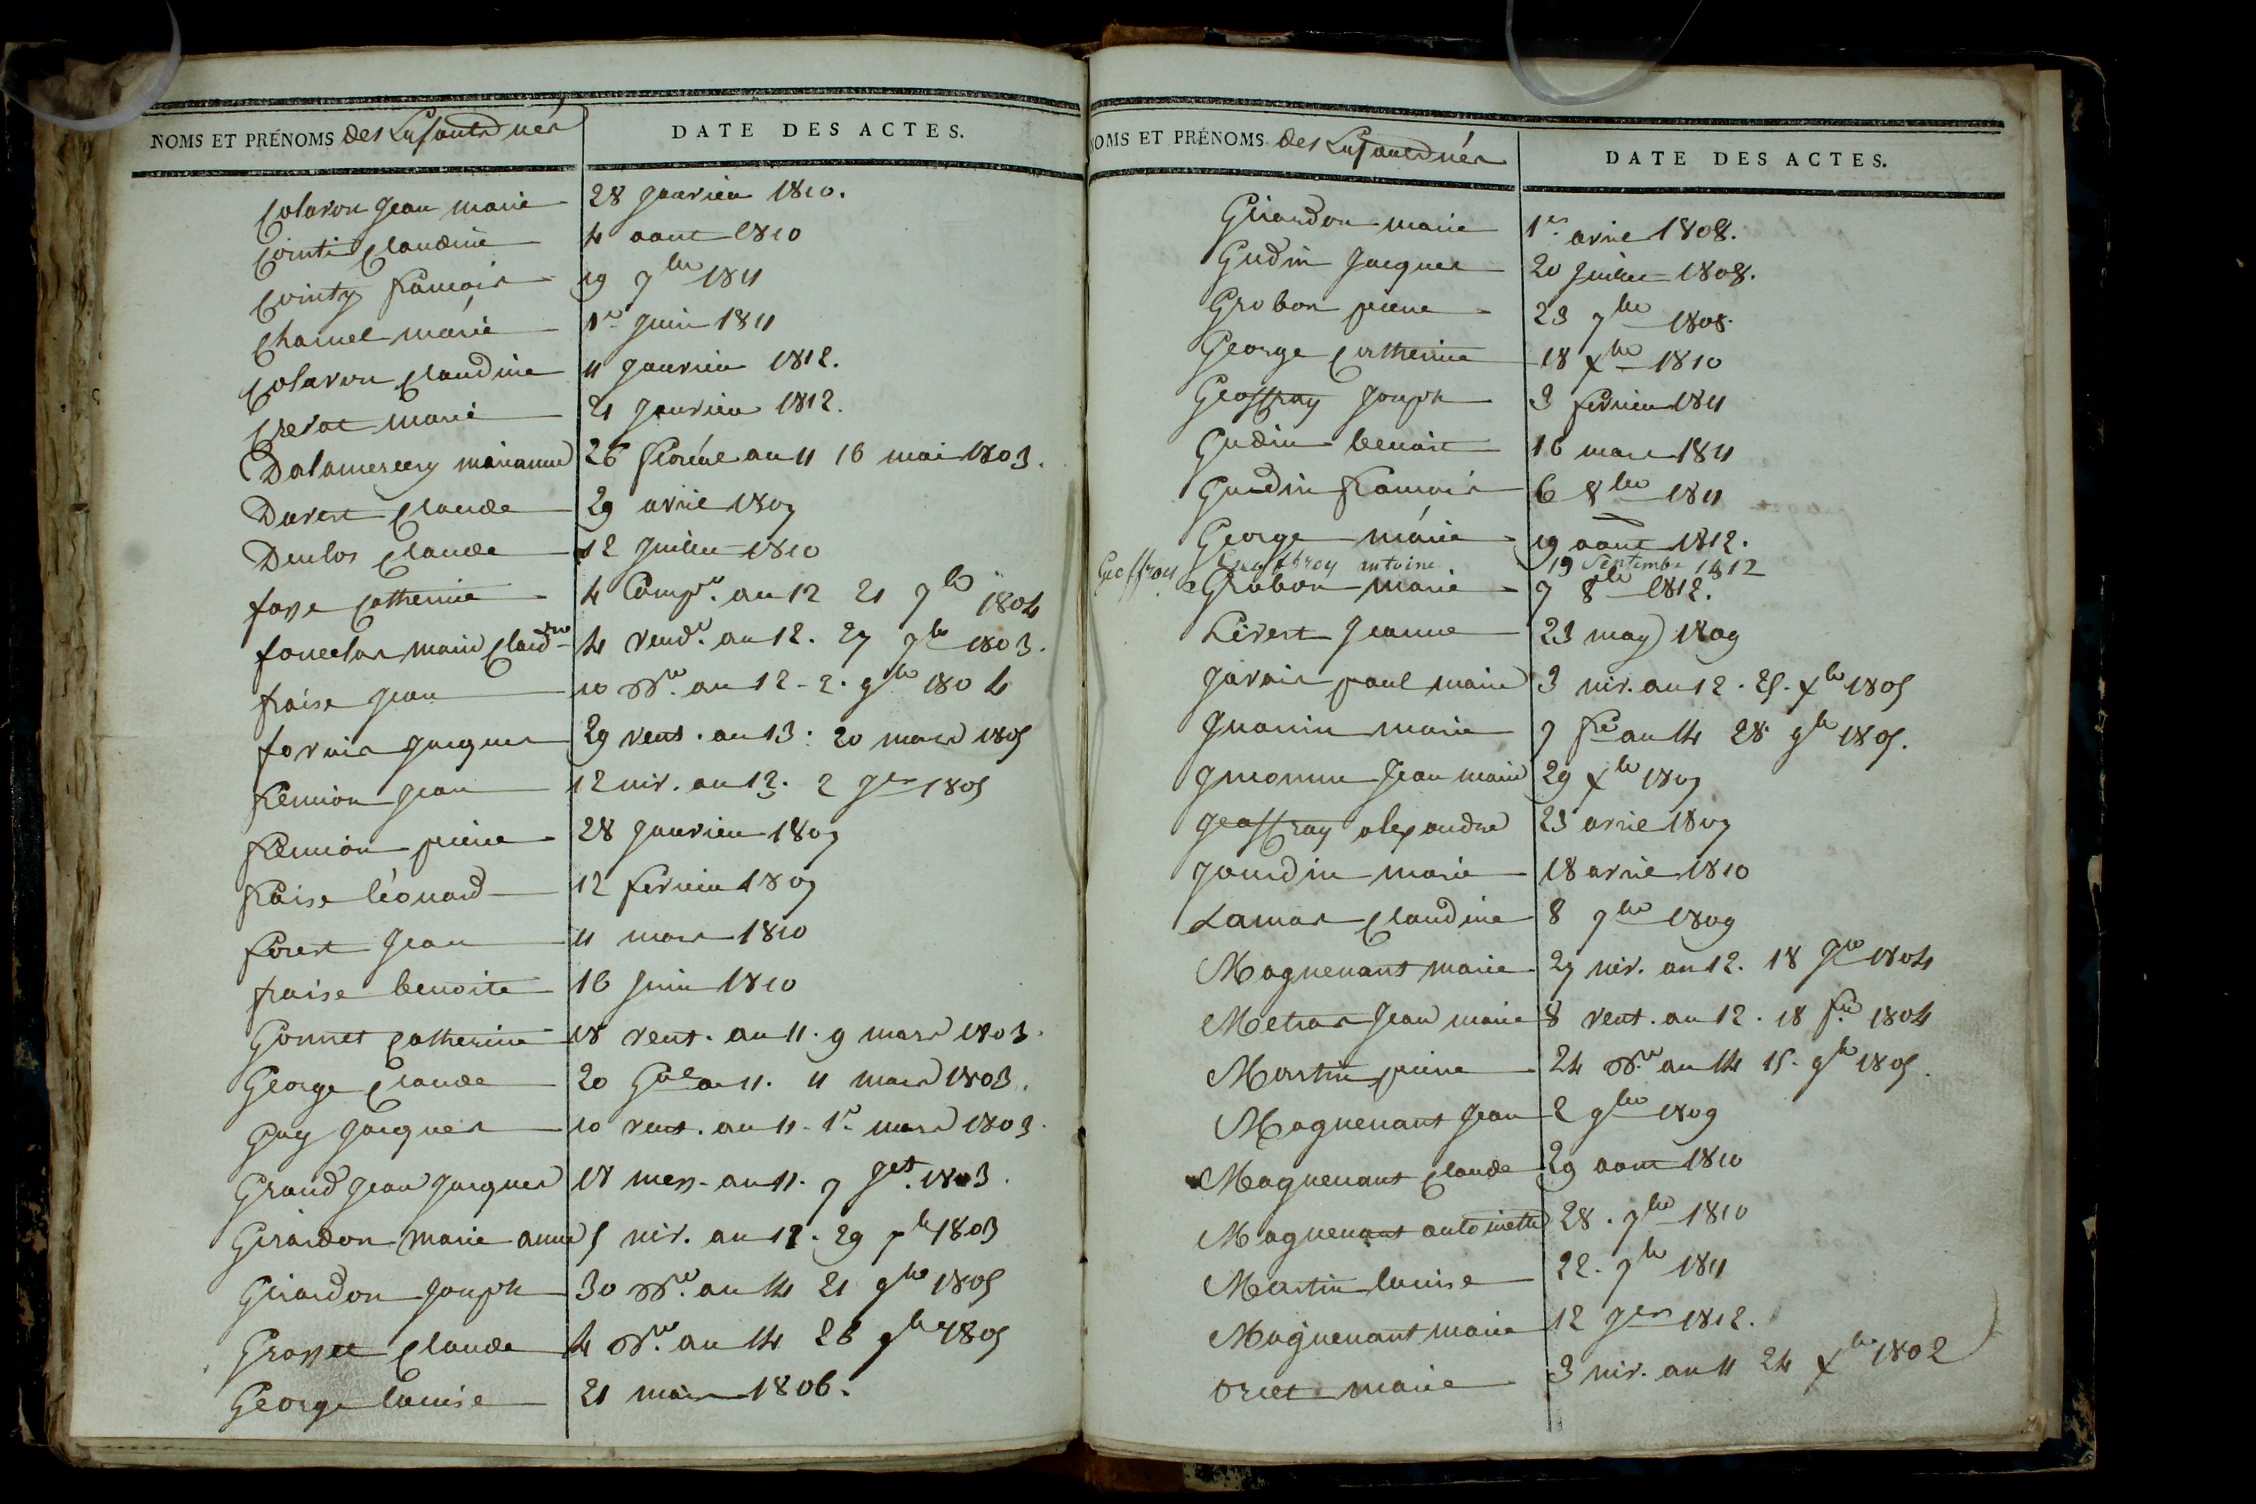 NOMS ET PRÉNOMS des Enfants nés
DATE DES ACTES.
Colavon Jean Marie 28 Janvier 1810.
Cointi Claudine 4 aout 1810
Cointy Francois 19 7bre 1811
Charuel marie 1er Juin 1811
Colavon Claudine 11 Janvier 1812.
Crerat marie 21 Janvier 1812.
Dalamercery marianne 26 floréal an 11 16 mai 1803.
Durest Claude 29 avril 1807
Duclos Claude 12 Juillet 1810
faye Catherine 4 Compre. an 12 21 7bre 1804
marie Claudine 4 vendre. an 12. 27 7bre 1803.
fraise Jean 10 Bre. an 12 - 2. 9bre 1804
forvis Jacques 29 vent. an 13. 20 mars 1805
Jean 12 niv. an 13. 2 Jer 1805
pierre 28 Janvier 1807
fraise léonard 12 fevrier 1807
forest Jean 11 mars 1810
fraise benoite 16 Juin 1810
Gonnet Catherine 18 vent. an 11. 9 mars 1803.
George Claude 20 Gal an 11. 11 mars 1803.
Guy Jacques 10 vent. an 11. 1er mars 1803.
Grand Jean Jacques 18 mess. an 11. 7 Jet. 1803.
Girardon Marie anne 5 niv. an 12. 29 1803
Girardon Joseph 30 Bre. an 14 21 9bre 1805
Claude 4 Bre. an 14 26 9bre 1805
George Louise 21 mars 1806.
NOMS ET PRÉNOMS des Enfants nés
DATE DES ACTES.
Girardon marie 1er avril 1808.
Gudin Jacques 20 Juillet 1808.
Grobon pierre 23 7bre 1808.
George Catherine 18 Xbre 1810
Geoffray Joseph 3 fevrier 1811
Gudin benoit 16 mars 1811
Gurdin francois 6 8bre 1811
George marie 19 aout 1812.
Geoffroy Geoffroy antoine 19 Septembre 1812
Grobon marie 7 8bre 1812.
Livest Jeanne 23 may 1809
Javais paul marie 3 niv. an 12. 25. Xbre 1805
marie 7 fre an 14 28 9bre 1805.
Jean marie 29 Xbre 1807
Jeoffray alexandre 23 avril 1807
Jourdin marie 18 avril 1810
Lamas Claudine 8 7bre 1809
Magnenant marie 27 niv. an 12. 18 Jer 1804
Metras Jean marie 8 vent. an 12. 18 fre 1804
Martin pierre 24 Bre an 14 15. 9bre 1805.
Magnenant Jean 2 9bre 1809
Magnenant Claude 29 aout 1810
Magnenant antoinette 28. 7bre 1810
Martin louise 22. 7bre 1811
Magnenant marie 12 Jer 1812.
Oriet marie 3 niv. an 11 24 Xbre 1802